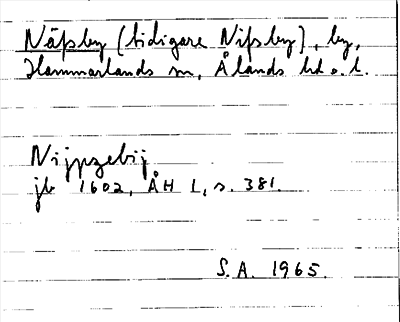 Näfsby (tidigare Nifsby), by,
Hammarlands sn, Ålands hd o. l.
Nijpzebij
jb 1602, ÅH 1, s. 381.
S.A. 1965.